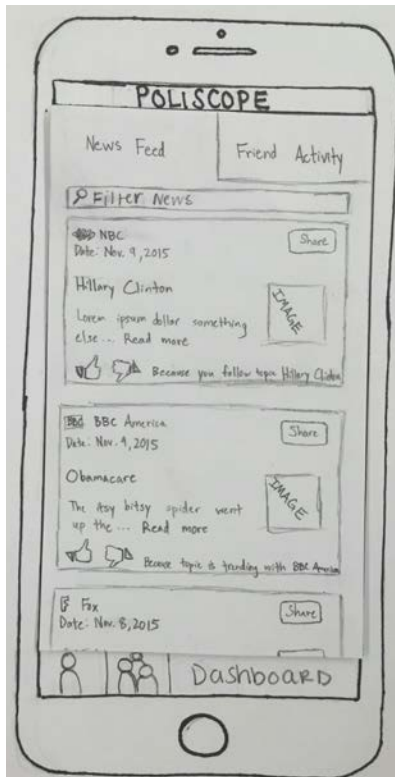 POLISCOPE
News Feed
Friend Activity
Filter News
NBC
Share
Date: Nov. 9, 2015
Hillary Clinton
Lorem ipsum dollar something
else... Read more
IMAGE
Because you follow topic Hillary Clinton
BBC BBC America
Share
Date: Nov. 9, 2015
Obamacare
The itsy bitsy spider went
up the ... Read more
IMAGE
Because topic is trending with BBC America
F Fox
Share
Date: Nov. 8, 2015
DASHBOARD